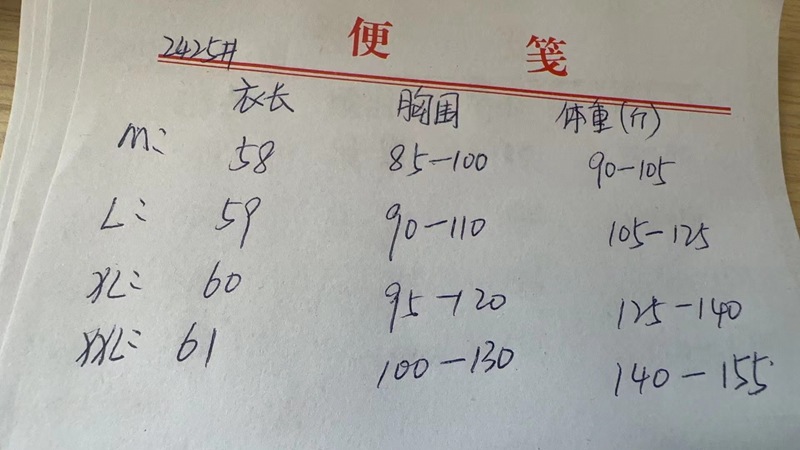 便 笺
2425#
衣长 胸围 体重(斤)
M: 58 85-100 90-105
L: 59 90-110 105-125
XL: 60 95-120 125-140
XXL: 61 100-130 140-155